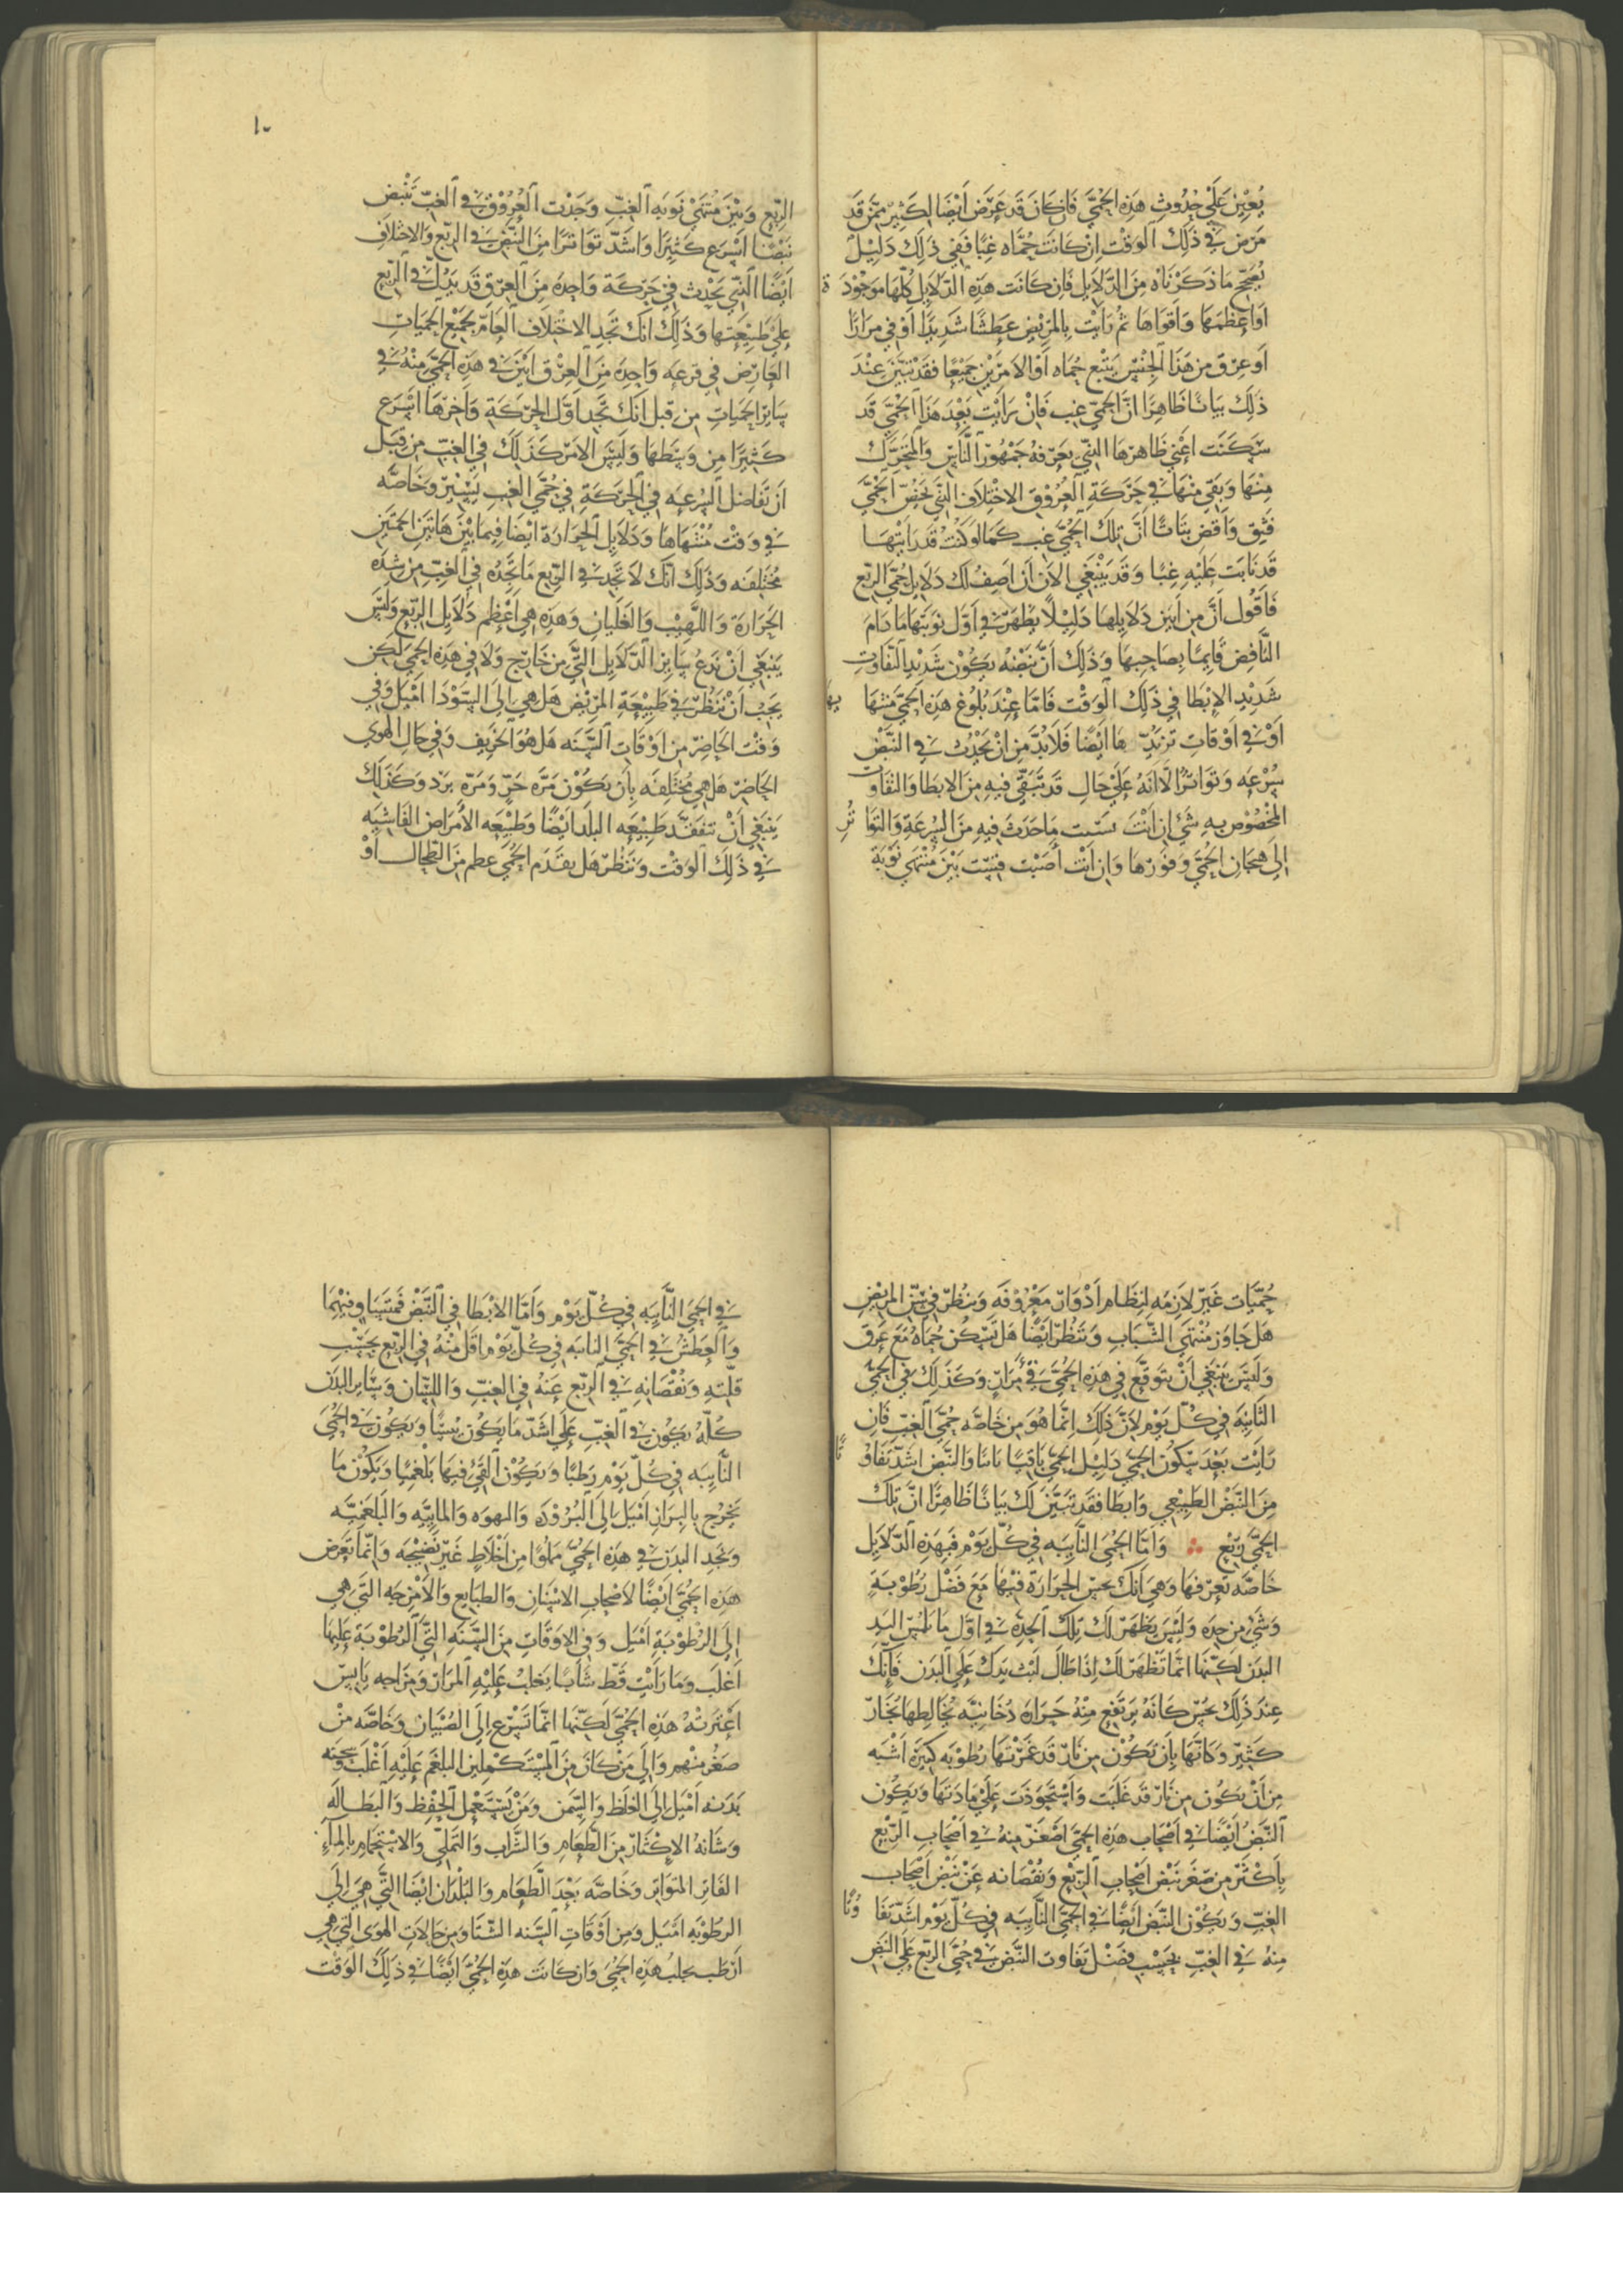 يُعِيْن عَلَيْ حُدُوثِ هَذِه الحُمَّيَ فَاِن كَانَ قَد عَرَضَ اَيْضًا لِكَثِيْرٍ مِمَّن قَد
مَرِضَ فِي ذَلِكَ الوَقْتِ اِن كَانَت حُمَّاه غِبًّا فَفِي ذَلِكَ دَلِيْلٌ
يُصَحِّح مَا ذَكَرْنَاهُ مِنَ الدَّلَايِلِ فَاِن كَانَت هَذِه الدَّلَايِل كُلّهَا مَوْجُوْدَة
اَو اَعظَمهَا وَاَقوَاهَا ثُم رَاَيْت بِالمَرِيْضِ عَطَشًا شَدِيدًا اَوْ قي مرَارًا
اَو عِرْقَ مِن هَذَا الجِنْسِ يَتْبَع حُمَاه اَو الاَمرَيْنِ جَمِيْعًا فقَد تبيَّنَ عِنْدَ
ذَلِكَ بيَانًا ظَاهِرًا انَّ الحُمَّيَ غِب فَاِنْ رَايْت بَعْدَ هَذَا الحُمَّيَ قَد
سَكَنَت اَعْنِي ظَاهِرهَا الَّذِي يَعرفهُ جَمْهُوْر النَّاسِ وَالمُتحَرّك
مِنْهَا وَبَقيَ مِنْهَا فِي حَرَكَةِ العُرُوْقِ الاِخْتِلَاف الَّذِي يَخُصّ الحُمَّيَ
فَثِق وَاَقضِ بتَاتًا اَنَّ تِلكَ الحُمَّيَ غب كَمَا لَو كُنْتَ قَد رَاَيْتهَا
قَد نَابَت عَلَيْهِ غِبًّا وَقَد يَنْبَغِي الاَن اَن اَصِفُ لَكَ دَلَايِل حُمَّيَ الرِّبْع
فَاَقُول اَنَّ مِن اَبْيَن دَلَايلهَا دَلِيْلًا يَظهَرُ فِي اَوَّلِ نَوبَتهَا مَا دَامَ
النَّافِض قَايمًا بِصَاحِبهَا وَذَلِكَ اَنَّ نَبْضهُ يَكُوْن شَدِيْد التَّفَاوتِ
شَدِيْد الاِبْطَا فِي ذَلِكَ الوَقْت فَاَمَّا عِنْدَ بُلُوغ هَذِه الحُمَّيَ منتهَا
اَوْ فِي اَوْقَاتِ تزَيّدهَا اَيْضًا فَلَا بُدَّ مِن اَنْ يَحْدُثَ فِي النَّبْضِ
سُرْعَه وَتَوَاتُر اِلَّا انَّهُ عَلَيْ حَالٍ قَد تَبَقَّي فِيهِ مِنَ الاِبطَا وَالتفَاوت
المَخْصُوْص بِهِ شَيْ اِن اَنْتَ مَا حَدَثَ فِيهِ مِنَ السُّرعَةِ وَالتَّوَاتُرِ
اِلَي هيجَانِ الحُمَّيَ وَفَوْرهَا وَاِن اَنْت اَصَبْت فقِسْتَ بَيْنَ مُنْتَهَي نَوْبَةِ
الرِّبْعِ وَبَيْنَ مُنْتَهَي نَوبَهِ الغِبّ وَجَدْتَ العُرُوْقَ فِي الغِبّ تَنْبِض
نَبْضًا اَسْرَع كَثِيْرًا وَاشَدّ تَوَاتُرًا مِنَ النَّبْضِ فِي الرِّبْعِ وَالاخْتِلَاف
اَيْضًا الَّذِي يَحْدث فِي حَرَكَة وَاحِدَة مِنَ العِرْقِ قَد يَدُلّ فِي الرِّبع
عَلَي طَبِيْعَتهَا وَذَلِكَ انَّكَ تَجد الاخْتِلَاف العَام لجَمِيْعِ الحُميَاتِ
العَارض فِي قرعَه وَاحِدَه مِنَ العِرْقِ اَبْيَن فِي هَذِه الحُمَّيَ مِنْهُ فِي
سَايِر الحُميَاتِ مِن قبل اَنَّكَ تَجد اَوَّل الحَرَكَةِ وَاَخِرهَا اَسْرَع
كَثِيْرًا مِن وَسَطهَا وَلَيْسَ الاَمر كَذَلِكَ فِي الغِبّ مِن قِبَل
اَن تَفَاضل السُرعَه فِي الحَرَكَةِ فِي حُمَّيَ الغِب يَسِيْر وَخَاصَّه
فِي وَقْت مُنْتَهَاهَا وَدَلَايِل الحَرَارَة ايْضًا فِيمَا بَيْنَ هَاتَيْن الحُمتَيْنِ
مُخْتَلِفَه وَذَلِكَ اَنَّكَ لَا تَجد فِي الرِّبع مَا تَجدُه فِي الغِبّ مِن شِدَّه
الحَرَارَة وَاللَّهِيْب وَالغَلَيَان وَهَذِه هِيَ اَعْظم دَلَايِل الرِّبع وَلَيْسَ
يَنبَغِي اَنْ نَدَع سَايِر الدَّلَايِل الَّتِي مِن خَارِج وَلَا فِي هَذِه الحُمَّيَ لَكِن
يَجبُ اَنْ نَنْظُر فِي طَبِيْعَةِ المَرِيْضِ هَل هِيَ اِلَي السَّوْدَا اَمْيَل وَفِي
وَقْت الحَاضِر مِن اَوْقَاتِ السَّنَه هَل هُوَ الخَرِيف وَفِي حَالِ الهَوي
الحَاضِر هَل هِيَ مُختَلِفَه بِاَن يَكُوْن مَرَّه حَرّ وَمَرَّه بَرْد وَكَذَلِكَ
يَنبَغِي اَنْ نتفَقَّد طَبِيْعَه البلَد اَيْضًا وَطَبِيْعَه الاَمرَاضِ الفَاشِيَه
فِي ذَلِكَ الوَقْت وَنَنْظُر هَل تقَدَّمَ الحُمَّي عظم مِنَ الطِّحَال اَوْ
١٠
حُمِّيَات غَيْر لَازِمَه لِنِظَام اَدْوَار مَعْرُوْفَه وَنَنْظُر فِي سِنِّ المَرِيْضِ
هَل جَاوَز مُنْتَهَي الشَّبَاب وَنَنْظُر اَيْضًا هَل تَسْكُن حُمَاهُ مَعَ عَرَق
وَلَيْسَ يَنْبَغِي اَنْ نتَوَقَّع فِي هَذِه الحُمَّيَ فِي مرَارٍ وَكَذَلِكَ فِي الحُمَّيَ
النَّايِبَه فِي كُلِّ يَوْم لِاَنَّ ذَلِكَ اِنَّمَا هُوَ مِن خَاصَّه حُمَّيَ الغِبّ فَاِن
رَاَيْت بَعْدَ سكُون الحُمَّيَ دَلِيْل الحُمَّيَ بَاقِيًا ثَابتًا وَالنَّبْض اَشَدّ تفَاوُتًا
مِنَ النَّبْضِ الطَّبِيْعِي وَابطَا فقَد تبَيَّنَ لَكَ بيَانًا ظَاهِرًا انَّ تِلكَ
الحُمَّيَ رِبْع وَاَمَّا الحُمَّيَ النَّايِبَه فِي كُلِّ يَوْم فَبِهَذِه الدَّلَايِل
خَاصَّه تَعرفهَا وَهِيَ اَنَّكَ تحسّ الحَرَارَة فِيْهَا مَعَ فَضْل رُطُوْبَةٍ
وَشَيْءٍ مِن حِدَّه وَلَيْسَ يَظهَر لَكَ تِلكَ الحِدَّه فِي اَوَّلِ مَا تَلْمس اليَد
البدَن لَكِنّهَا انَّمَا تَظهَر لَكَ اِذَا طَالَ لَبْث يَدكَ عَلَي البَدَن فَاِنَّكَ
عِنْدَ ذَلِكَ تحُسّ كَاَنَّهُ يَرتَفِع مِنْهُ حَرَارَة دُخَانيَّه يُخَالطهَا بُخَار
كَثِيْر وَكَاَنّهَا بِاَن تكُوْن مِن نَار قَد غَمَرتْهَا رُطُوْبَه كَثِيْرَه اَشْبَه
مِن اَنْ يَكُون مِن نَار قَد غَلَبَت وَاسْتَحْوَذَت عَلَي مَادَتهَا وَيَكُون
النَّبْض اَيْضًا فِي اَصْحَاب هَذِه الحُمَّيَ اَصْغَر مِنهُ فِي اَصْحَابِ الرِّبع
بِاَكْثَر مِن صِغَر نَبْض اَصْحَابِ الرِّبْعِ وَنُقْصَانه عَنْ نَبْض اَصْحَاب
الغِبّ وَيَكُوْن النَّبْض اَيْضًا فِي الحُمَّيَ النَّايِبَه فِي كُلِّ يَوْم اَشَدّ تفَاوُتًا
مِنهُ فِي الغِبّ بِحَسْبِ فَضْل تَفَاوت النَّبْض فِي حُمَّيَ الرّبع عَلَي النَّبْض
فِي الحُمَّيَ النَّايبَه فِي كُلِّ يَوْم وَاَمَّا الاِبْطَا فِي النَّبْض فَمتَسَاوٍ فِيْهِمَا
وَالعَطَشُ فِي الحُمَّيَ النايبَه فِي كُلِّ يَوْم اَقَل مِنْهُ فِي الرِّبع بحَسْبِ
قلَّتهِ وَنُقْصَانِهِ فِي الرِّبْعِ عَنْهُ فِي الغِبّ وَاللِّسَان وَسَايِر البَدَن
كُلّهُ يكُون فِي الغِبّ عَلَي اَشَدّ مَا يَكُون يُبْسًا وَيَكُون فِي الحُمَّيَ
النَّايبَه فِي كُلِّ يَوْم رَطبًا وَيَكُوْن القَيْ فِيهَا بَلْغَمِيًّا وَيَكُوْن مَا
يَخرُج بِالبرَاز اَمْيَل اِلَي البُرُوْدَه وَالنهوَه وَالمايِيَّه وَالبَلغَمِيَّه
وَنَجد البدَن فِي هَذِه الحُمَّيَ مَملُوًا مِن اَخْلَاطٍ غَيْر نَضِيْجَه وَانَّمَا تَعرض
هَذِه الحُمَّيَ اَيْضًا لاَصْحَابِ الاَسْنَان وَالطبَايع وَالاَمْزِجَه الَّتِي هِيَ
اِلَي الرُّطُوْبَةِ اَمْيَل وَفِي الاوْقَاتِ مِنَ السَّنَهِ الَّتِي الرُّطُوْبَة عَليهَا
اَغْلَب وَمَا رَاَيْت قَطّ شَابًّا يَغلبُ عَلَيْهِ المرَار وَمزَاجه يَابِس
اعْتَرتْهُ هَذِه الحُمَّيَ لَكِنّهَا انَّمَا تَسْرع اِلَي الصِّبْيَان وَخَاصَّه مَنْ
صَغُر مِنْهم وَاِلَي مَنْ كَانَ مِنَ المُسْتَكْمِلِين البلغَم عَلَيْهِ اَغْلَب وَسحنَه
بَدَنه اَمْيَل اِلَي الغِلَظِ وَالسِّمن وَمَنْ يَسْتَعْمِل الخفْض وَالبَطَالَه
وَشَانهُ الاِكْثَار مِنَ الطَّعَام وَالشَّرَاب وَالتَمَلِّي وَالاسْتِحْمَام بِالمَآءِ
الفَاتِر المتَوَاتِر وَخَاصَّه بَعْدَ الطَّعَام وَالبُلْدَان اَيْضًا الَّتِي هِيَ اِلَي
الرطُوْبَهِ اَمْيَل وَمِن اَوْقَاتِ السَّنَه الشِّتَا وَمِن حَالَاتِ الهَوَي الَّتِي هِيَ
اَرْطَب يجلبُ هَذِه الحُمَّيَ وَاِن كَانَت هَذِه الحُمَّيَ اَيْضًا فِي ذَلِكَ الوَقْت